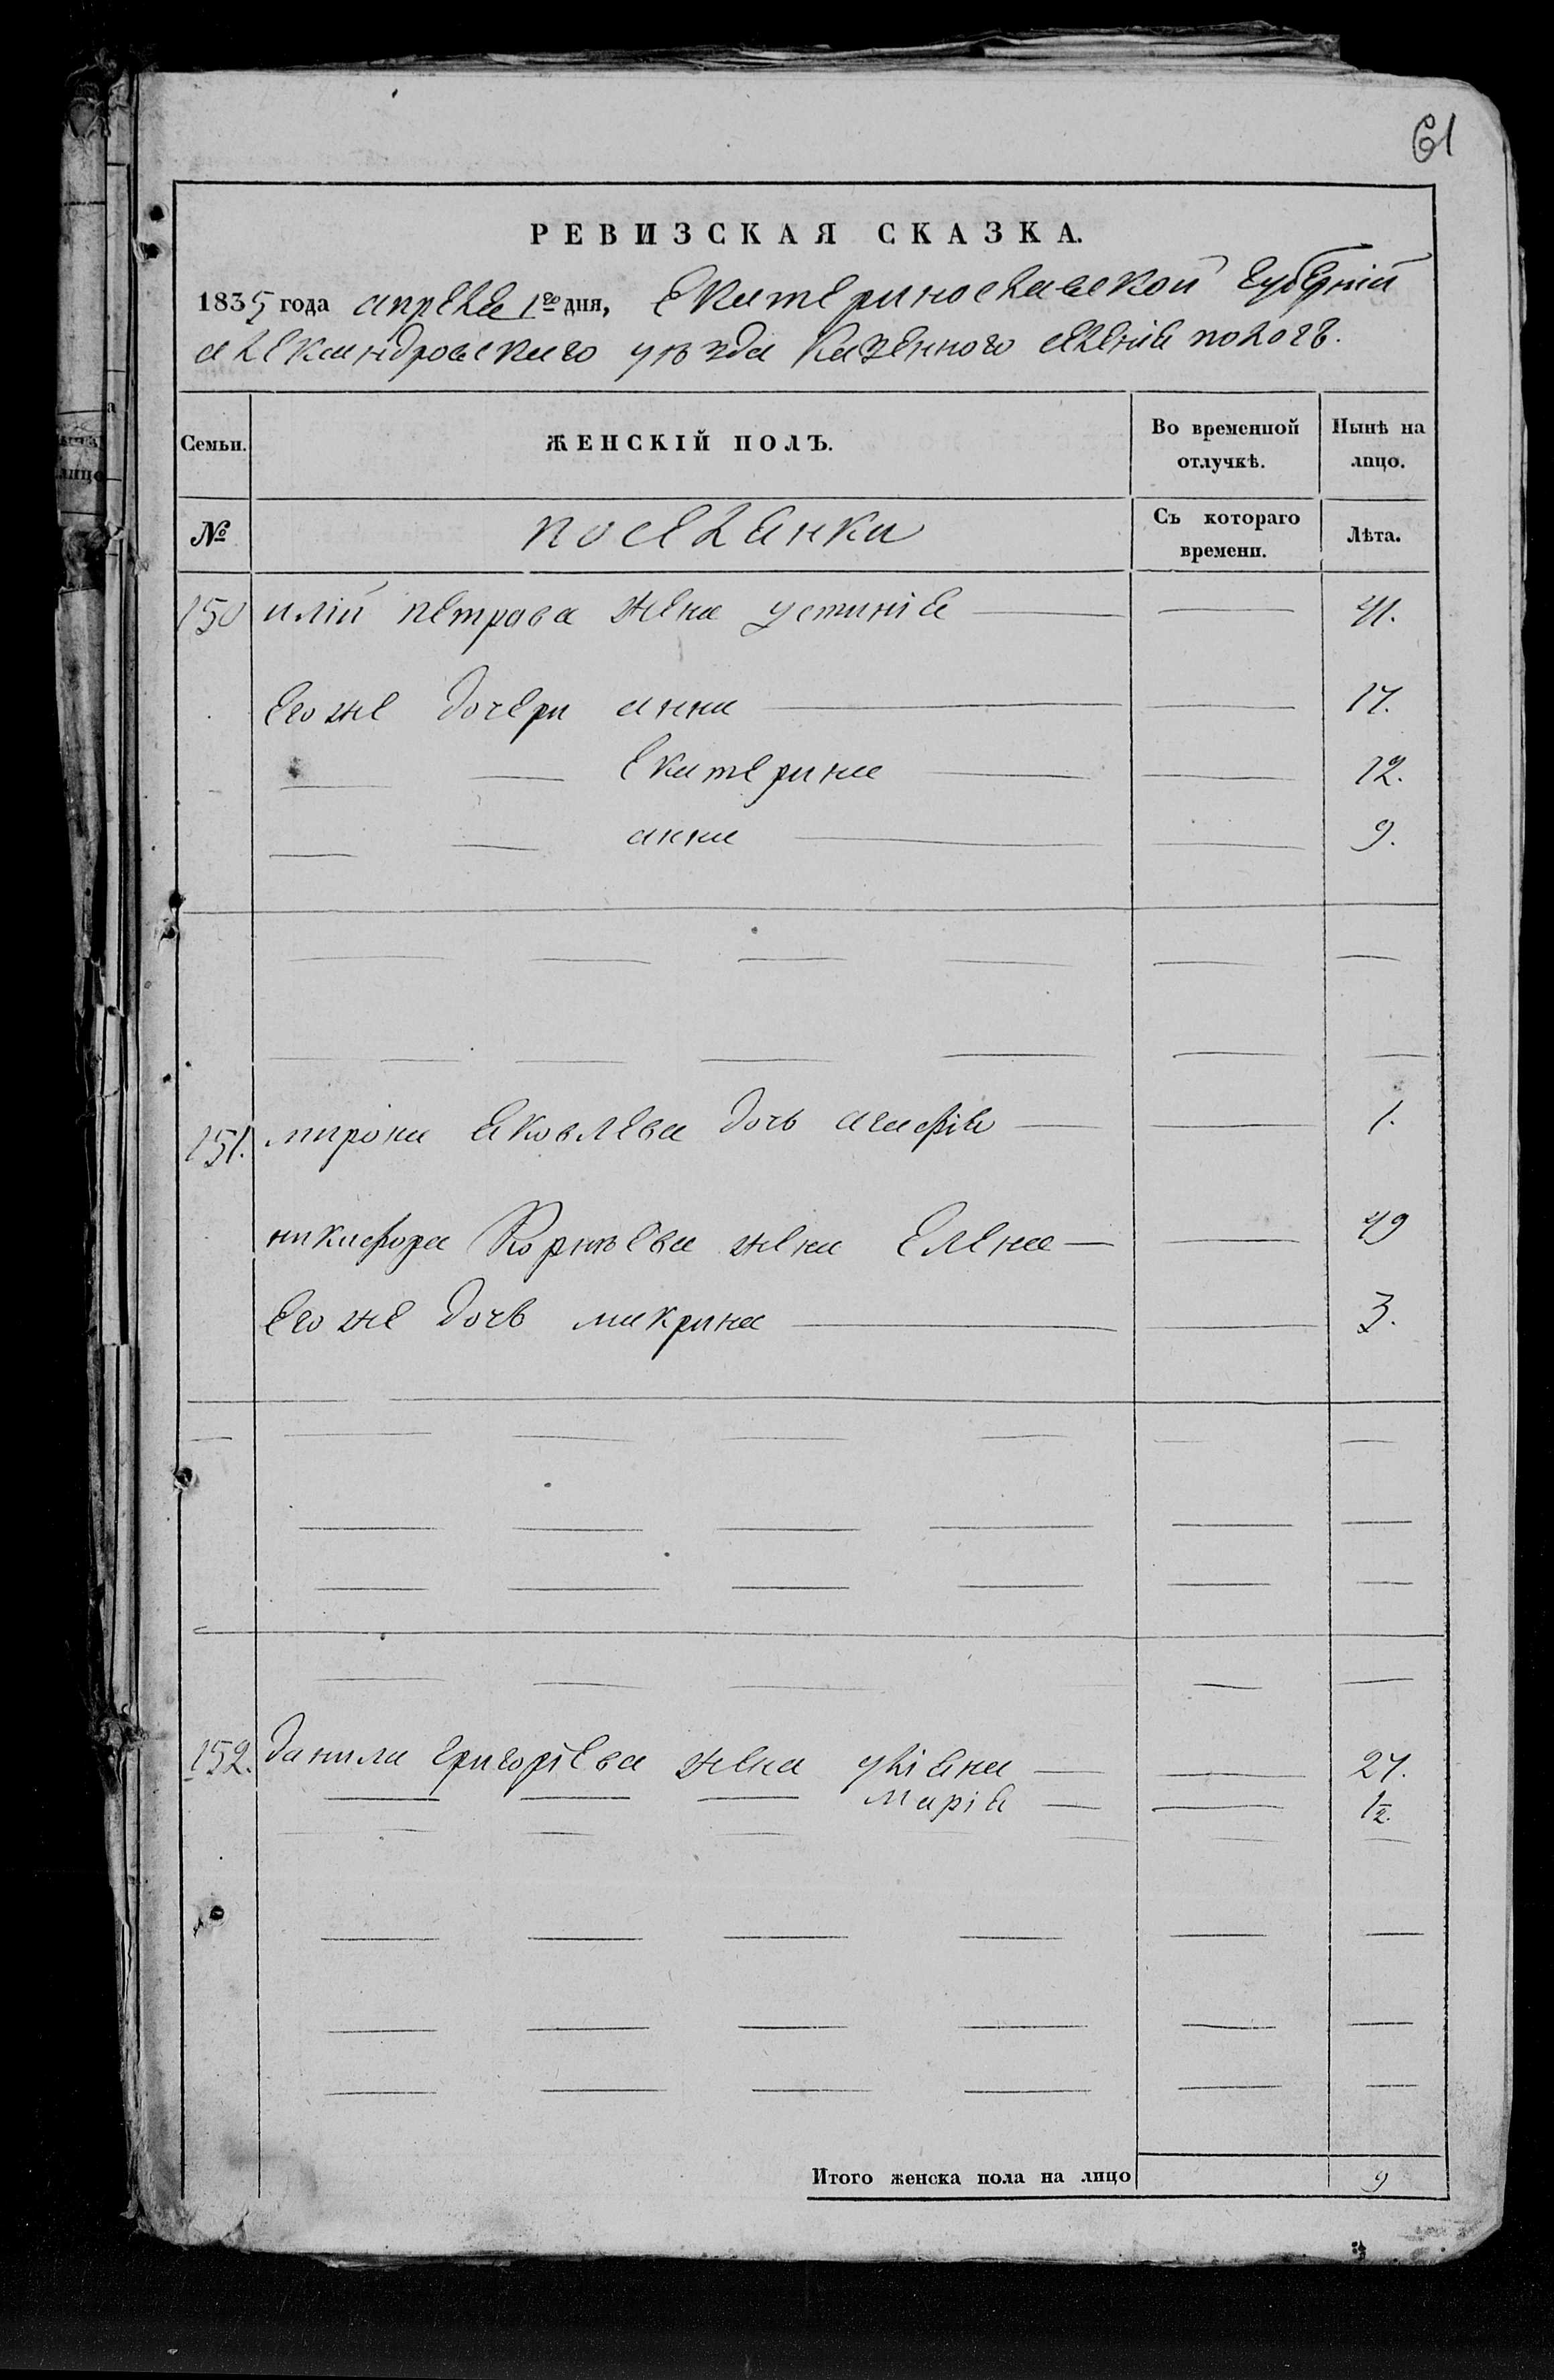 61
РЕВИЗСКАЯ СКАЗКА.
1835 года апреля 1го дня, Екатеринославской губернiй
александровскаго уѣзда казенного селения пологъ.
Семьи. ЖЕНСКIЙ ПОЛЪ. Во временной отлучкѣ. Нынѣ на лицо.
№ поселянки Съ котораго времени. Лѣта.
150 илiи петрова жена устинiя 41.
Его же дочери анна 17.
Екатерина 12.
анна 9.
151. мирона яковлева дочь агафiя 1.
никифора Корнѣева жена Елена 49
Его же дочь макрина 3.
152. данила григорiева жена улiяна 27.
Марiя 1/2.
Итого женска пола на лицо 9